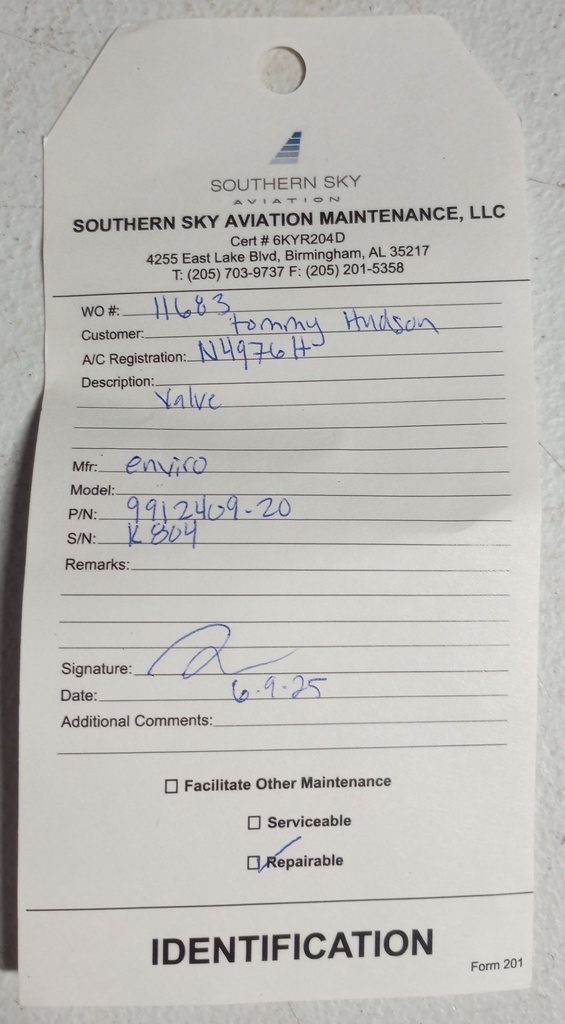 SOUTHERN SKY
AVIATION
SOUTHERN SKY AVIATION MAINTENANCE, LLC
Cert # 6KYR204D
4255 East Lake Blvd, Birmingham, AL 35217
T: (205) 703-9737 F: (205) 201-5358
WO #: 11683
Customer: tommy Hudson
A/C Registration: N4976H
Description:
Valve
Mfr: enviro
Model:
P/N: 9912409-20
S/N: K804
Remarks:
Signature:
Date: 6-9-25
Additional Comments:
Facilitate Other Maintenance
Serviceable
Repairable
IDENTIFICATION
Form 201